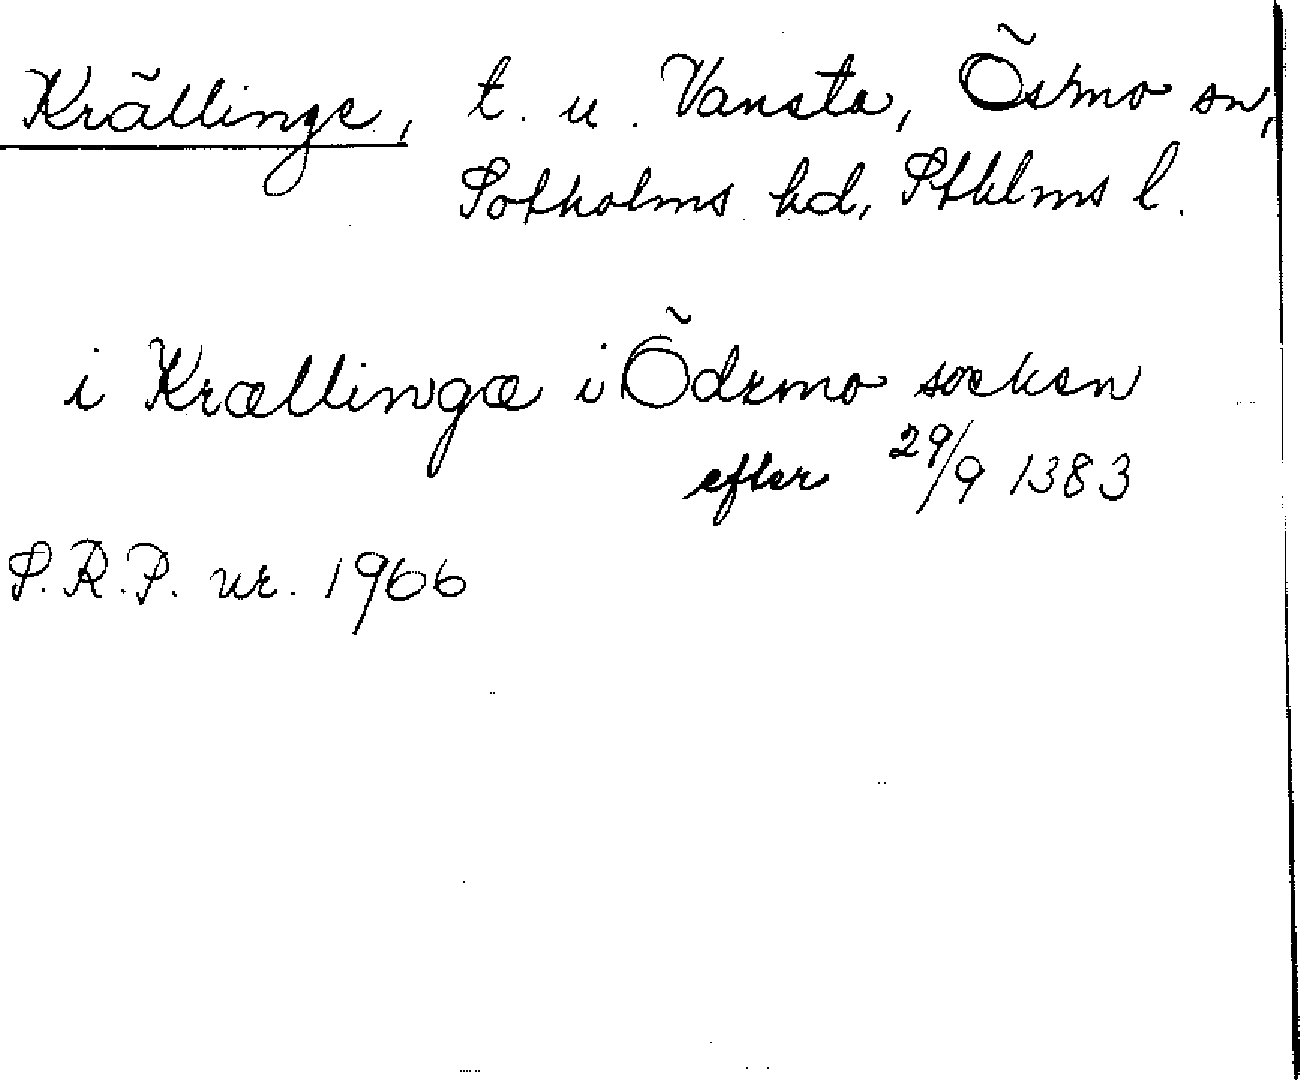 Krällinge, t. u. Vansta, Ösmo sn,
Sotholms hd, Sthlms l.
i Krællingæ i Ödzmo socken
efter 29/9 1383
S.R.P. nr. 1966